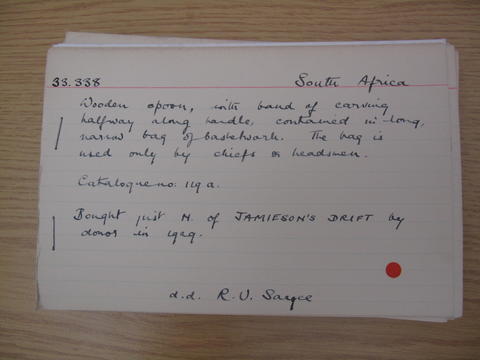 33.338 South Africa
Wooden spoon, with band of carving
halfway along handle, contained in long,
narrow bag of basketwork. The bag is
used only by chiefs or headsmen.
Catalogue no: 119a.
Bought just N. of JAMIESON'S DRIFT by
donor in 1929.
d.d. R.U. Sayce